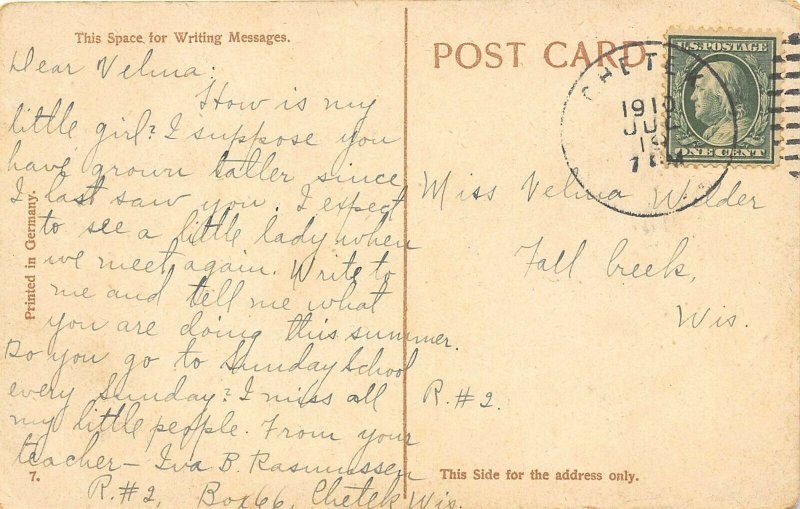 This Space for Writing Messages.
Dear Velma:
How is my
little girl? I suppose you
have grown taller since
I last saw you. I expect
to see a little lady when
we meet again. Write to
me and tell me what
you are doing this summer.
Do you go to Sunday School
every Sunday? I miss all
my little people. From your
teacher— Iva B. Rasmussen
R.#2, Box 66, Chetek Wis.
Printed in Germany.
7.
POST CARD
CHETEK
1910
U.S. POSTAGE
ONE CENT
Miss Velma Welder
Fall Creek,
Wis.
R.#2.
This Side for the address only.